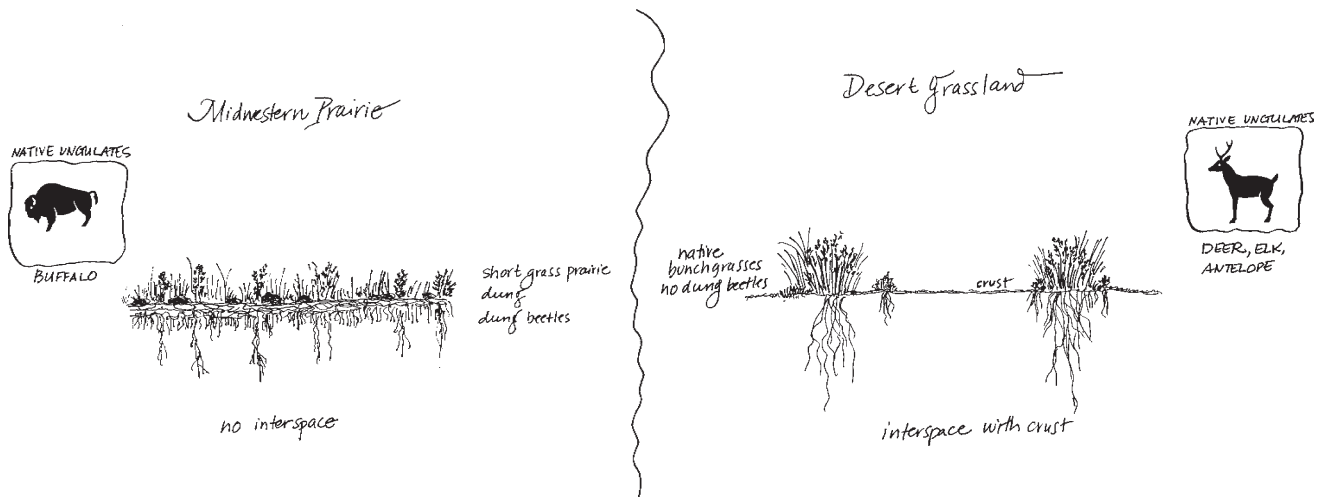 Midwestern Prairie
NATIVE UNGULATES
BUFFALO
short grass prairie
dung
dung beetles
no interspace
Desert Grassland
NATIVE UNGULATES
DEER, ELK,
ANTELOPE
native
bunchgrasses
no dung beetles
crust
interspace with crust